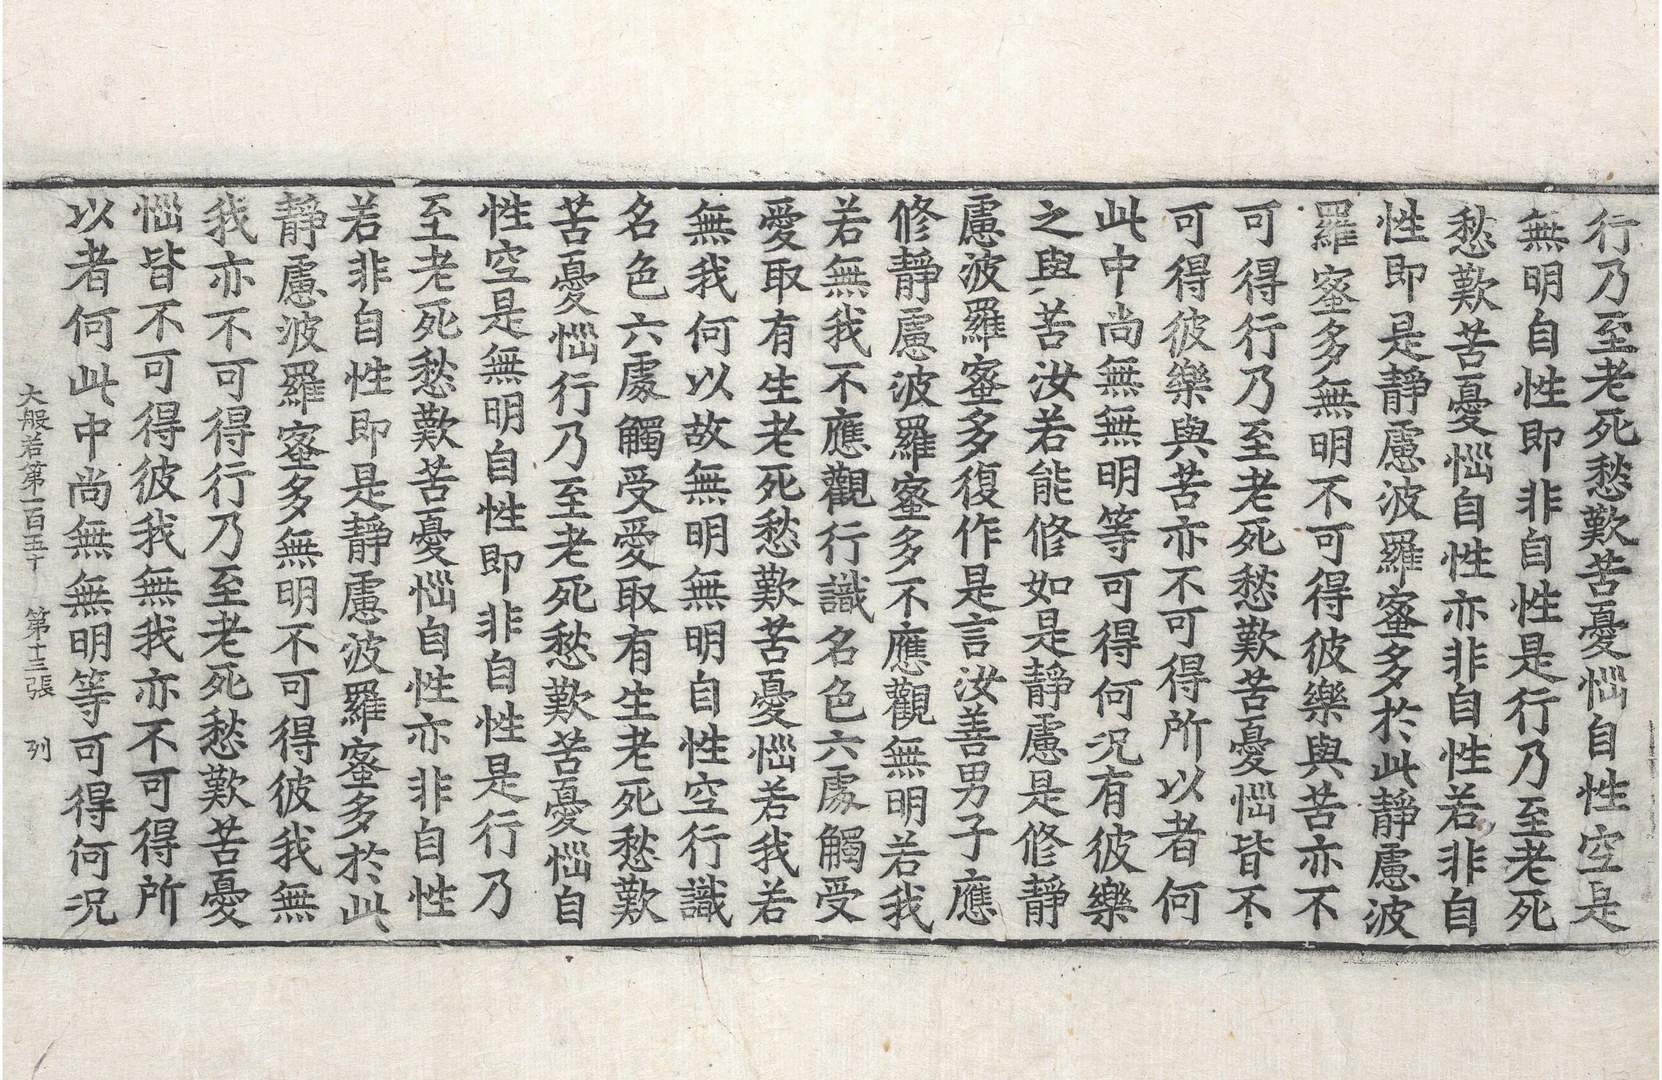 行乃至老死愁歎苦憂惱自性空是
無明自性即非自性是行乃至老死
愁歎苦憂惱自性亦非自性若非自
性即是靜慮波羅蜜多於此靜慮波
羅蜜多無明不可得彼樂與苦亦不
可得行乃至老死愁歎苦憂惱皆不
可得彼樂與苦亦不可得所以者何
此中尚無無明等可得何況有彼樂
之與苦汝若能修如是靜慮是修靜
慮波羅蜜多復作是言汝善男子應
修靜慮波羅蜜多不應觀無明若我
若無我不應觀行識名色六處觸受
愛取有生老死愁歎苦憂惱若我若
無我何以故無明無明自性空行識
名色六處觸受愛取有生老死愁歎
苦憂惱行乃至老死愁歎苦憂惱自
性空是無明自性即非自性是行乃
至老死愁歎苦憂惱自性亦非自性
若非自性即是靜慮波羅蜜多於此
靜慮波羅蜜多無明不可得彼我無
我亦不可得行乃至老死愁歎苦憂
惱皆不可得彼我無我亦不可得所
以者何此中尚無無明等可得何況
大般若第一百五十 第十三張 列